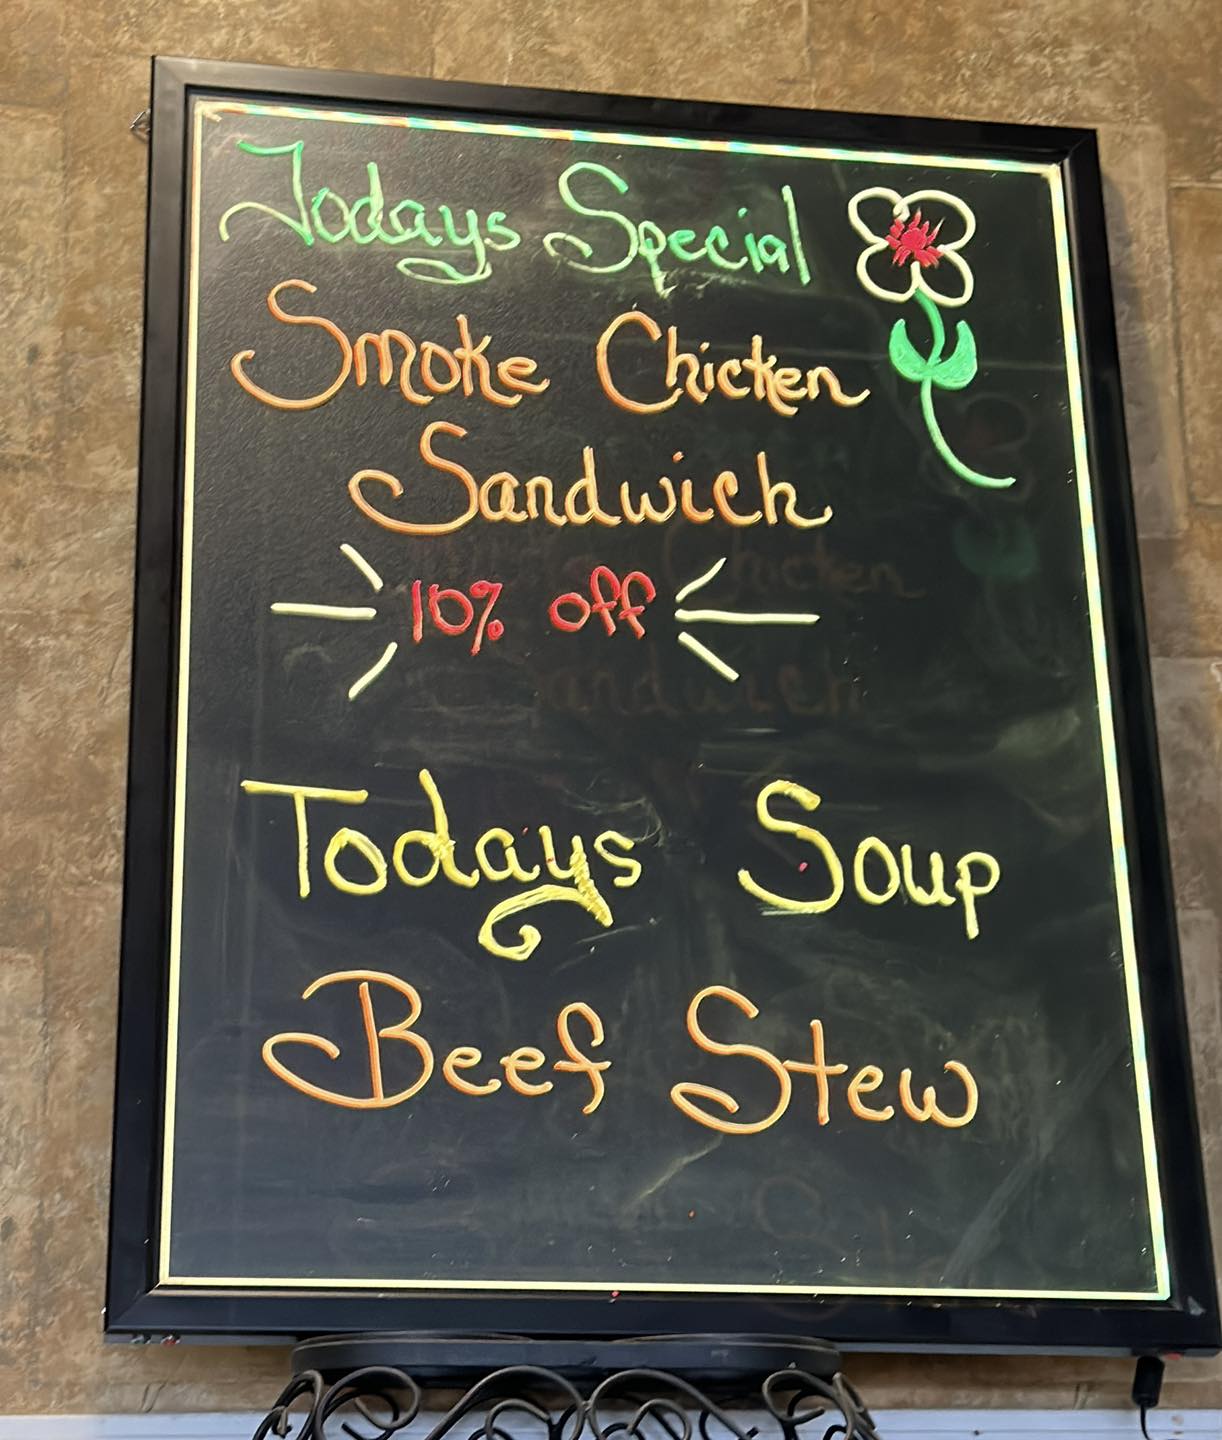 Todays Special
Smoke Chicken
Sandwich
10% off
Todays Soup
Beef Stew